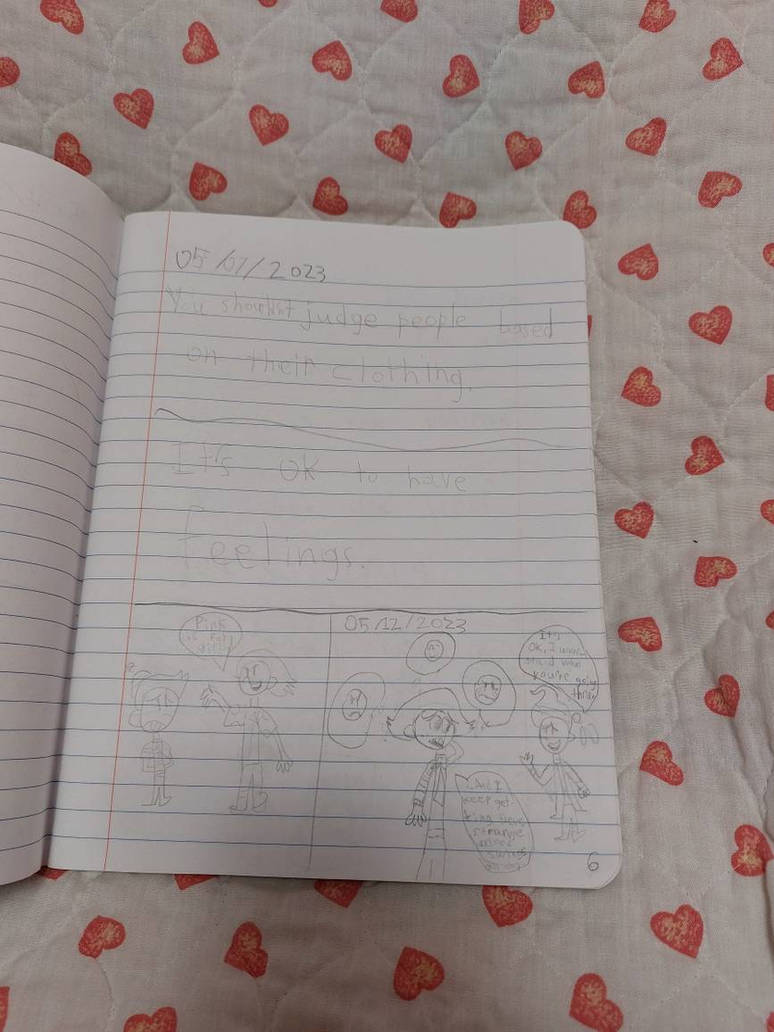 05/07/2023
You shouldnt judge people based
on their clothing.
It's ok to have
feelings.
Pink
is for
girls!
05/12/2023
It's
OK, I under
stand what
you're going
throu
I keep get-
ting these
strange
mood
swings